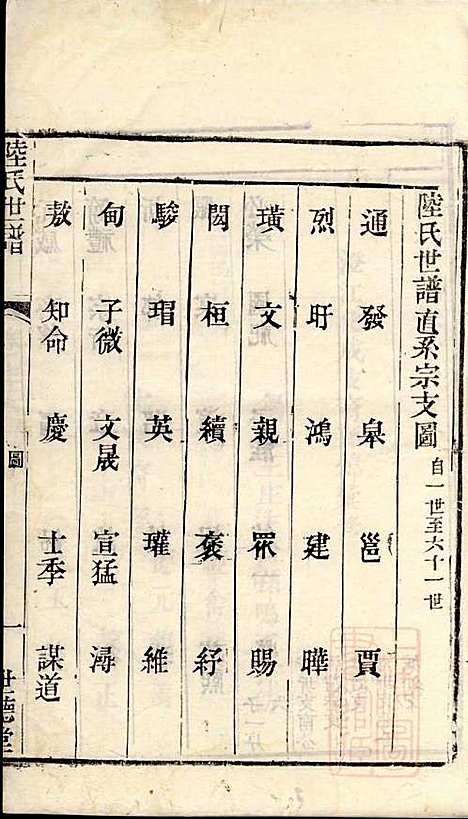 陸氏世譜直系宗支圖 自一世至六十一世
通 發 皋 邕 賈
烈 玗 鴻 建 曄
璜 文 親 眾 賜
閎 桓 續 褒 紆
駿 瑁 英 瓘 維
甸 子微 文晟 宣猛 潯
敖 知命 慶 士季 謀道
陸氏世譜 圖 一 世德堂